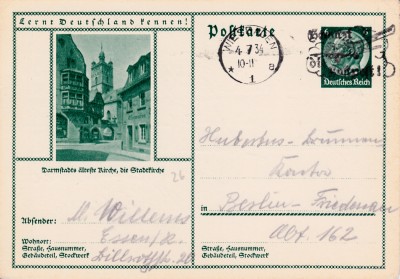 Lernt Deutschland kennen!
Postkarte
4·7 34
10-11
* 1 8
6
Deutsches Reich
Darmstadts älteste Kirche, die Stadtkirche
26
Hubertus-brunnen
Kontor
in Berlin-Friedenau
Abt. 162
Absender: M. Willems
Essen/R.
Wohnort:
Straße, Hausnummer,
Gebäudeteil, Stockwerk
Straße, Hausnummer,
Gebäudeteil, Stockwerk